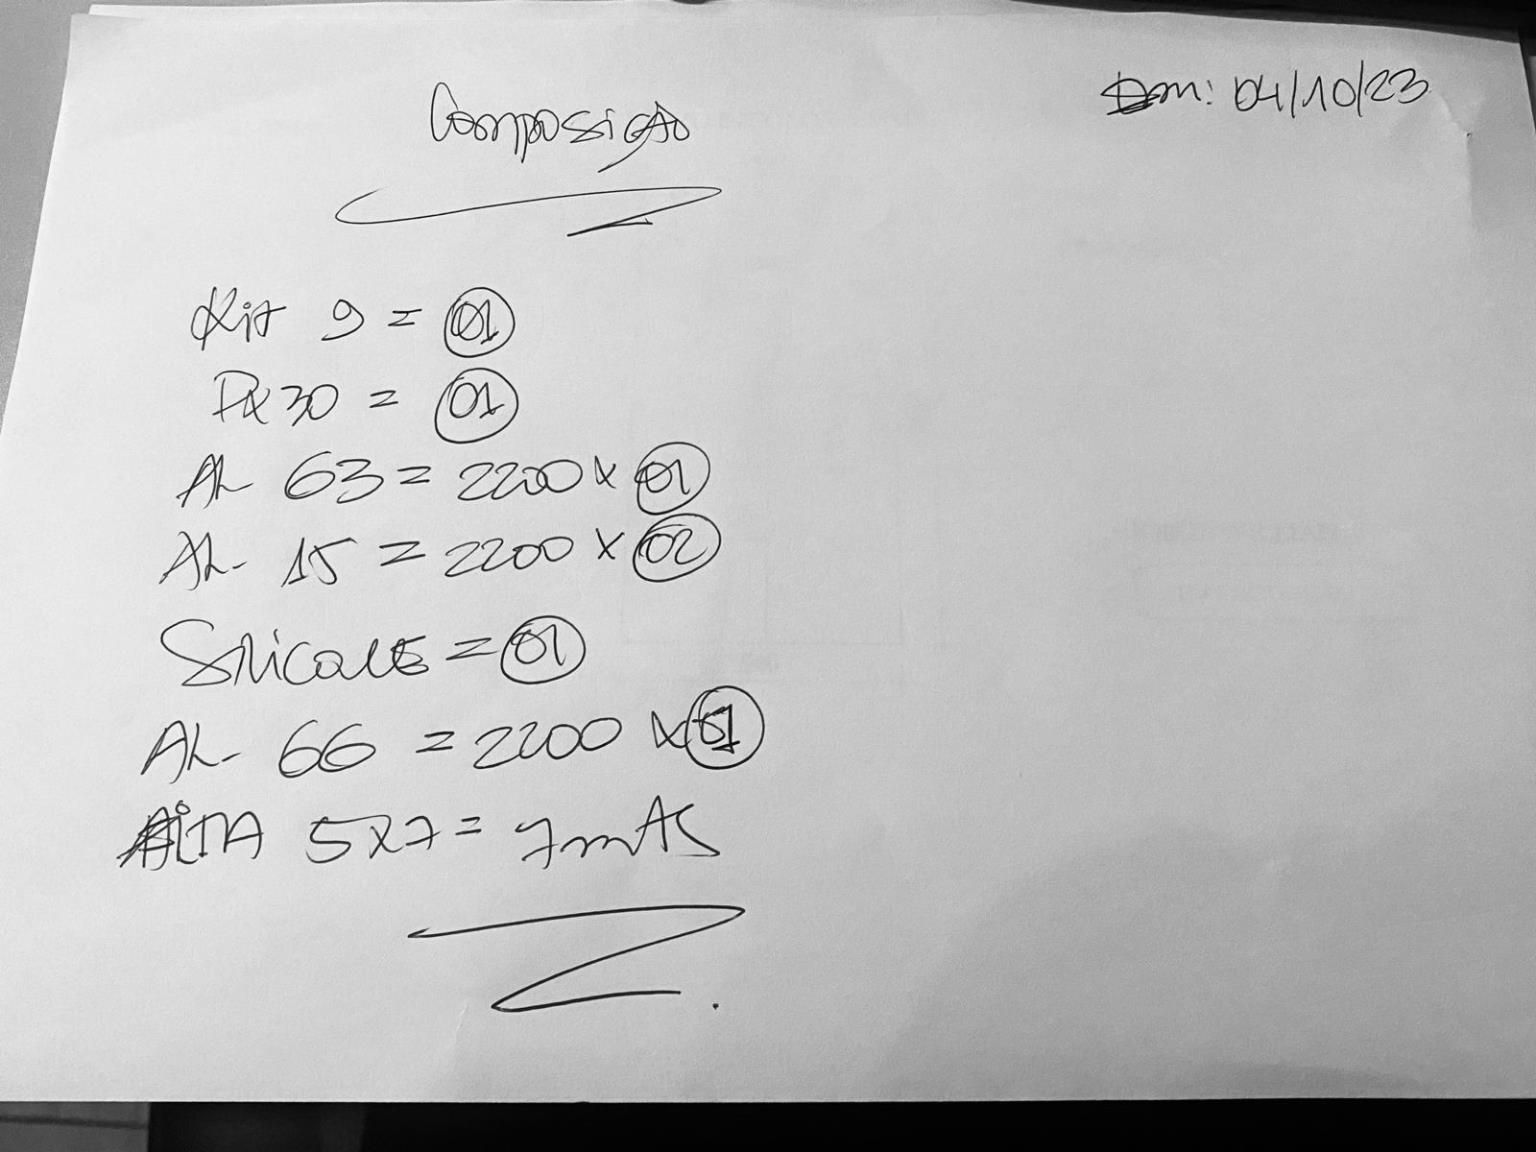 Composição
Em: 04/10/23
Kit 9 = 01
PX 30 = 01
AL 63 = 2200 x 01
AL- 15 = 2200 x 02
Silicone = 01
AL- 66 = 2200 x 01
FiTA 5x7 = 7mts